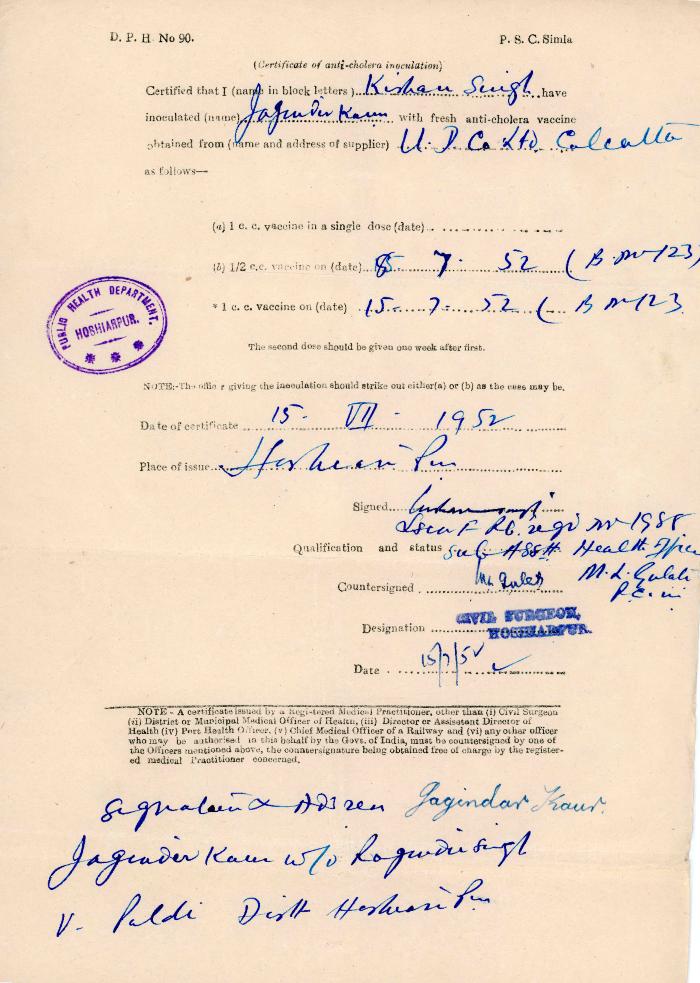 D. P. H. No 90. P. S. C. Simla
(Certificate of anti-cholera inoculation)
Certified that I (name in block letters) Kishan Singh have
inoculated (name) Joginder Kaur with fresh anti-cholera vaccine
obtained from (name and address of supplier) U. D. Co Ltd. Calcutta
as follows—
(a) 1 c. c. vaccine in a single dose (date)
(b) 1/2 c.c. vaccine on (date) 8 - 7 - 52 ( B. No 123)
* 1 c. c. vaccine on (date) 15 - 7 - 52 ( B No 123
PUBLIC HEALTH DEPARTMENT.
HOSHIARPUR.
The second dose should be given one week after first.
NOTE:-The office r giving the inoculation should strike out either(a) or (b) as the case may be.
Date of certificate 15 - VII - 1952
Place of issue Hoshiarpur
Signed
regd no 1988
Qualification and status Sub Asstt Health Officer
Countersigned M. L. Gulati M. L. Gulati
Designation CIVIL SURGEON,
HOSHIARPUR.
Date 15/7/52
NOTE - A certificate issued by a Registered Medical Practitioner, other than (i) Civil Surgeon
(ii) District or Municipal Medical Officer of Health, (iii) Director or Assistant Director of
Health (iv) Port Health Officer, (v) Chief Medical Officer of a Railway and (vi) any other officer
who may be authorised in this behalf by the Govt. of India, must be countersigned by one of
the Officers mentioned above, the countersignature being obtained free of charge by the register-
ed medical Practitioner concerned.
Signature & Address Jagindar Kaur.
Joginder Kaur w/o Singh
V. Paldi Distt Hoshiarpur